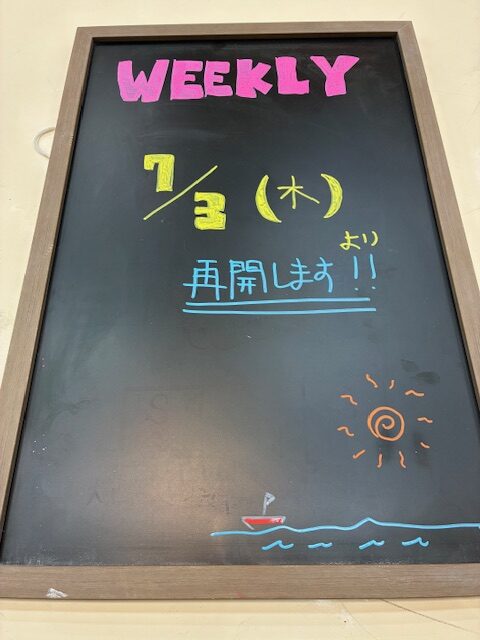 WEEKLY
7/3 (木)
より
再開します!!